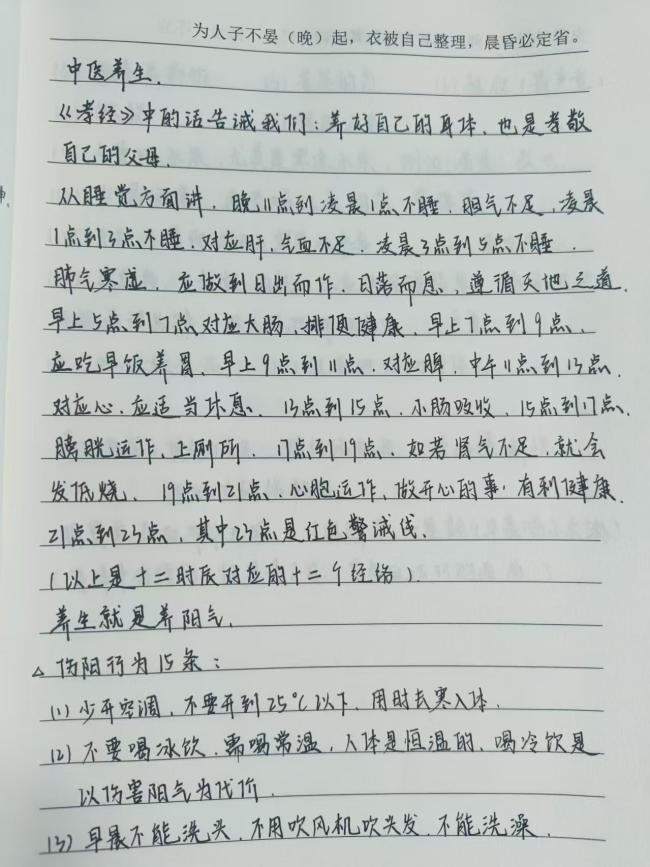 为人子不晏（晚）起，衣被自己整理，晨昏必定省。
中医养生
《孝经》中的话告诫我们：养好自己的身体，也是孝敬
自己的父母。
从睡觉方面讲，晚11点到凌晨1点不睡，胆气不足，凌晨
1点到3点不睡，对应肝，气血不足，凌晨3点到5点不睡，
肺气寒虚，应做到日出而作，日落而息，遵循天地之道。
早上5点到7点对应大肠，排便健康，早上7点到9点，
应吃早饭养胃，早上9点到11点，对应脾，中午11点到13点，
对应心，应适当休息，13点到15点，小肠吸收，15点到17点，
膀胱运作，上厕所，17点到19点，如若肾气不足，就会
发低烧，19点到21点，心胞运作，做开心的事，有利健康，
21点到23点，其中23点是红色警诫线。
（以上是十二时辰对应的十二个经络）.
养生就是养阳气。
△伤阳行为15条：
(1) 少开空调，不要开到25℃以下，用时去寒入体.
(2) 不要喝冰饮，需喝常温，人体是恒温的，喝冷饮是
以伤害阳气为代价.
(3) 早晨不能洗头，不用吹风机吹头发，不能洗澡.